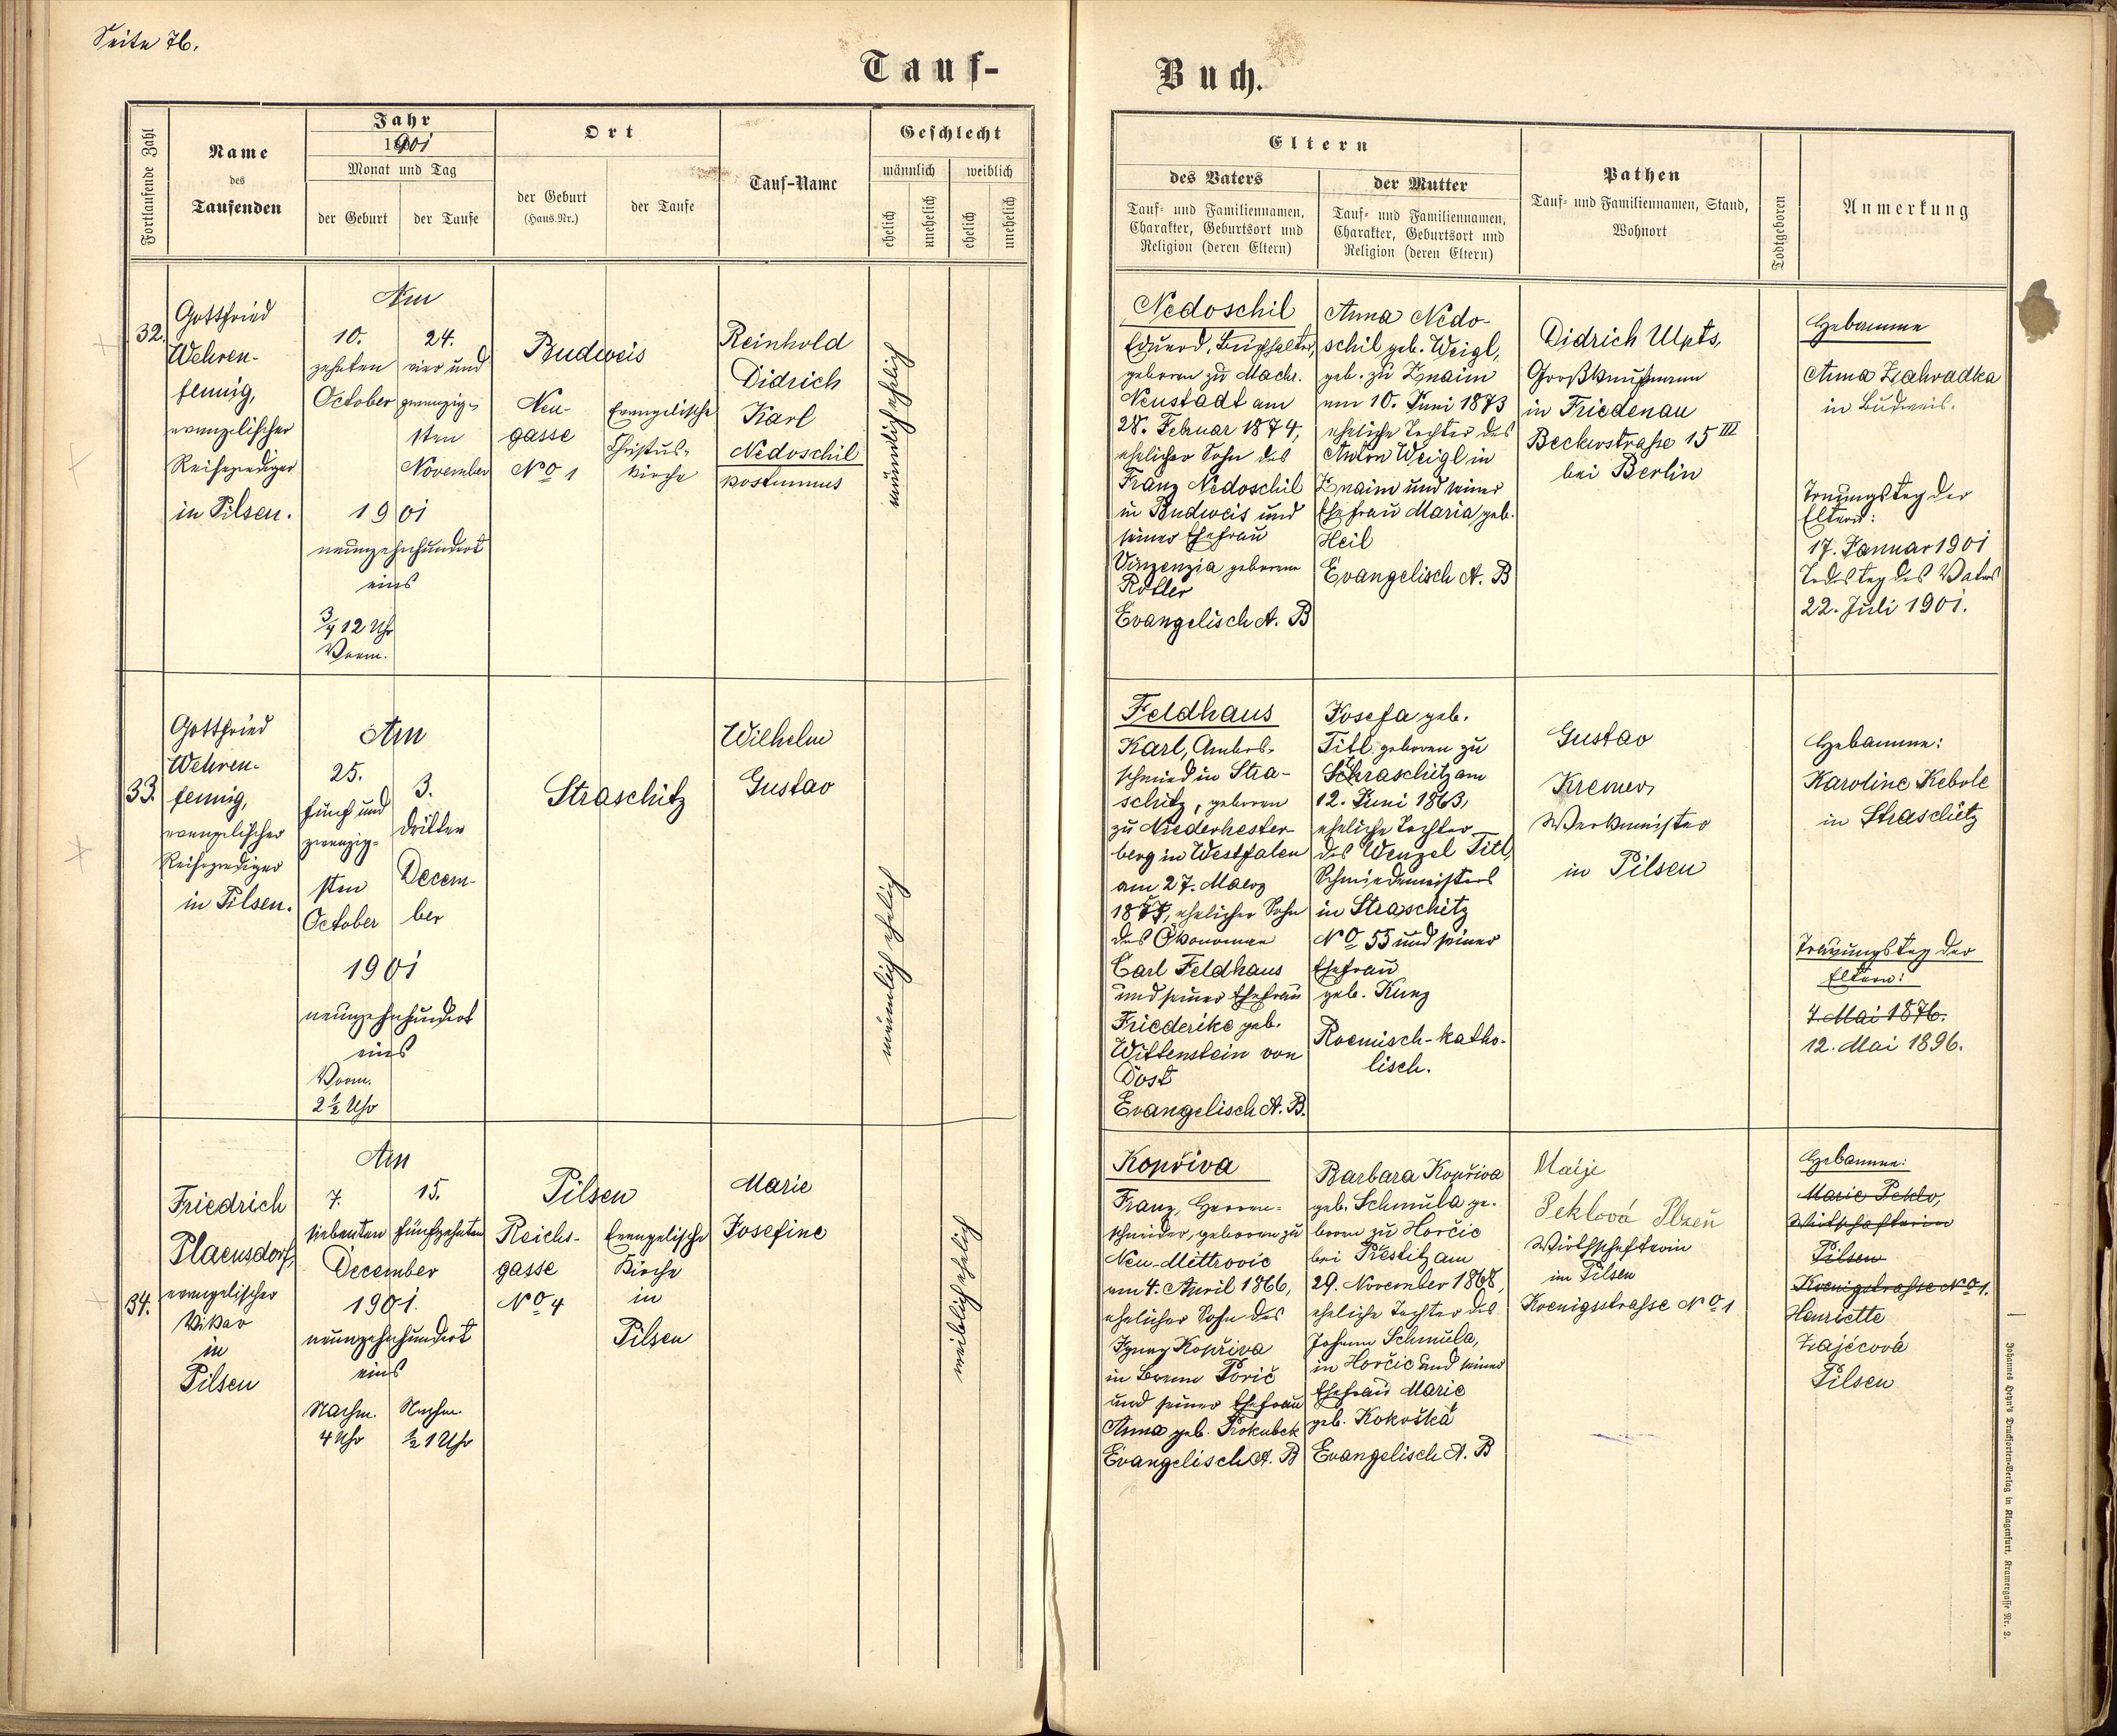 Seite 76.
Tauf-
Fortlaufende Zahl
Name
des
Taufenden
Jahr
1901
Monat und Tag
der Geburt
der Taufe
Ort
der Geburt
(Haus-Nr.)
der Taufe
Tauf-Name
Geschlecht
männlich
weiblich
ehelich
unehelich
ehelich
unehelich
32.
Gottfried
Wehren-
fennig,
evangelischer
Reiseprediger
in Pilsen.
Am
10.
zehnten
October
24.
vier und
zwanzig-
sten
November
1901
neunzehnhundert
eins
3/4 12 Uhr
Vorm.
Budweis
Neu-
gasse
No 1
Evangelische
Christus-
kirche
Reinhold
Didrich
Karl
Nedoschil
postumus
männlich ehelich
33.
Gottfried
Wehren-
fennig,
evangelischer
Reiseprediger
in Pilsen.
Am
25.
fünf und
zwanzig-
sten
October
3.
dritten
Decem-
ber
1901
neunzehnhundert
eins
Vorm.
2 1/2 Uhr
Straschitz
Wilhelm
Gustav
männlich ehelich
34.
Friedrich
Plaensdorf,
evangelischer
Vikar
in
Pilsen
Am
7.
siebenten
15.
fünfzehnten
December
1901.
neunzehnhundert
eins
Nachm.
4 Uhr
Nachm.
1/2 1 Uhr
Pilsen
Reichs-
gasse
No 4
Evangelische
Kirche
in
Pilsen
Marie
Josefine
weiblich ehelich
Buch.
Eltern
des Vaters
Tauf- und Familiennamen,
Charakter, Geburtsort und
Religion (deren Eltern)
der Mutter
Tauf- und Familiennamen,
Charakter, Geburtsort und
Religion (deren Eltern)
Pathen
Tauf- und Familiennamen, Stand,
Wohnort
Todtgeboren
Anmerkung
Nedoschil
Eduard, Buchhalter,
geboren zu Maehr.
Neustadt am
28. Februar 1874,
ehelicher Sohn des
Franz Nedoschil
in Budweis und
seiner Ehefrau
Vinzenzia geborene
Rotler
Evangelisch A. B
Anna Nedo-
schil geb. Weigl,
geb. zu Znaim
am 10. Juni 1873
eheliche Tochter des
Anton Weigl in
Znaim und seiner
Ehefrau Maria geb.
Heil
Evangelisch A. B
Didrich Ulpts,
Großkaufmann
in Friedenau
Beckerstrasse 15 III
bei Berlin
Hebamme
Anna Zahradka
in Budweis.
Trauungstag der
Eltern:
17. Januar 1901
Todestag des Vaters
22. Juli 1901.
Feldhaus
Karl, Ambos-
schmied in Stra-
schitz, geboren
zu Niederhester-
berg in Westfalen
am 27. Maerz
ehelicher Sohn
des Ökonomen
Carl Feldhaus
und seiner Ehefrau
Friederike geb.
Wittenstein von
Evangelisch A. B.
Josefa geb.
Titl, geboren zu
Straschitz am
12. Juni 1863,
eheliche Tochter
des Wenzel Titl,
Schmiedemeisters
in Straschitz
No 55 und seiner
Ehefrau
geb. Kunz
Roemisch-katho-
lisch.
Gustav
Kremer,
Werkmeister
in Pilsen
Hebamme:
Karoline Kebrle
in Straschitz
Trauungstag der
Eltern:
7. Mai 1876.
12. Mai 1896.
Kopřiva
Franz, Herren-
schneider, geboren zu
Neu-Mittrovic
am 4. April 1866,
ehelicher Sohn des
Ignaz Kopřiva
in Porič
und seiner Ehefrau
Anna geb. Prokubek
Evangelisch A. B
Barbara Kopřiva
geb. Schmula ge-
boren zu Horčic
bei Přestitz am
29. November 1868,
eheliche Tochter des
Johann Schmula,
in Horčic und seiner
Ehefrau Marie
geb. Kokoška
Evangelisch A. B
Marje
Peklová Plzeň
Wirthschafterin
in Pilsen
Koenigsstrasse No 1
Hebamme:
Marie Peklo,
Wirtschafterin
Pilsen
Koenigstrasse No 1.
Henriette
Zaječová
Pilsen
Johannes Heyn's Drucksorten-Verlag in Klagenfurt, Kramergasse Nr. 2.